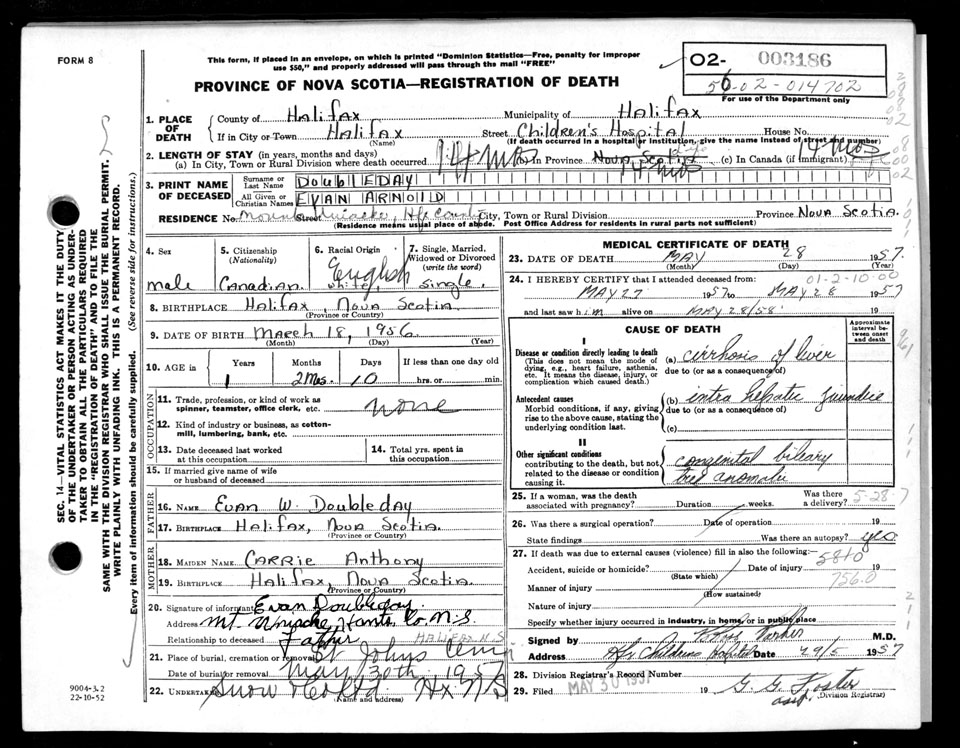 FORM 8
This form, if placed in an envelope, on which is printed "Dominion Statistics—Free, penalty for improper
use $50," and properly addressed will pass through the mail "FREE"
O2- 003186
56-02-014702
For use of the Department only
PROVINCE OF NOVA SCOTIA—REGISTRATION OF DEATH
1. PLACE OF DEATH
County of Halifax Municipality of Halifax
If in City or Town Halifax Street Children's Hospital House No.
(Name) (If death occurred in a hospital or institution, give the name instead of street and number)
2. LENGTH OF STAY (in years, months and days)
(a) In City, Town or Rural Division where death occurred 14 mos (b) In Province Nova Scotia 14 mos (c) In Canada (if immigrant) 14 mos
3. PRINT NAME OF DECEASED
Surname or Last Name DOUBLEDAY
All Given or Christian Names EVAN ARNOLD
RESIDENCE No. Mount Uniacke, Hfx County Street City, Town or Rural Division Province Nova Scotia.
(Residence means usual place of abode. Post Office Address for residents in rural parts not sufficient)
4. Sex male
5. Citizenship (Nationality) Canadian.
6. Racial Origin English white
7. Single, Married, Widowed or Divorced (write the word) single.
8. BIRTHPLACE Halifax, Nova Scotia.
(Province or Country)
9. DATE OF BIRTH March 18, 1956.
(Month) (Day) (Year)
10. AGE in Years 1 Months 2 Mos. Days 10 If less than one day old hrs. or min.
OCCUPATION
11. Trade, profession, or kind of work as spinner, teamster, office clerk, etc. none
12. Kind of industry or business, as cotton-mill, lumbering, bank, etc.
13. Date deceased last worked at this occupation
14. Total yrs. spent in this occupation
15. If married give name of wife or husband of deceased
FATHER
16. NAME Evan W. Doubleday
17. BIRTHPLACE Halifax, Nova Scotia.
(Province or Country)
MOTHER
18. MAIDEN NAME CARRIE Anthony
19. BIRTHPLACE Halifax, Nova Scotia.
(Province or Country)
20. Signature of informant Evan Doubleday.
Address Mt. Uniacke, Hants Co. N.S.
Relationship to deceased Father
HALIFAX N.S.
21. Place of burial, cremation or removal St Johns Cem
Date of burial or removal May 30th 1957
22. UNDERTAKER Snow & Co Ltd. Hx N/S
(Name and address)
MEDICAL CERTIFICATE OF DEATH
23. DATE OF DEATH MAY 28 1957.
(Month) (Day) (Year)
24. I HEREBY CERTIFY that I attended deceased from 01-2-10-00
MAY 27 1957 to MAY 28 1957
and last saw him alive on MAY 28/58 19
CAUSE OF DEATH
Approximate interval between onset and death
I
Disease or condition directly leading to death
(This does not mean the mode of dying, e.g., heart failure, asthenia, etc. It means the disease, injury, or complication which caused death.)
(a) cirrhosis of liver
due to (or as a consequence of)
Antecedent causes
Morbid conditions, if any, giving rise to the above cause, stating the underlying condition last.
(b) intra hepatic jaundice
due to (or as a consequence of)
(c)
II
Other significant conditions
contributing to the death, but not related to the disease or condition causing it.
congenital biliary
tree anomalie
25. If a woman, was the death associated with pregnancy? Duration weeks. Was there a delivery?
5-28-7
26. Was there a surgical operation? Date of operation 19
State findings Was there an autopsy? yes
27. If death was due to external causes (violence) fill in also the following:
5810
Accident, suicide or homicide? Date of injury 19
(State which)
756.0
Manner of injury
(How sustained)
Nature of injury
Specify whether injury occurred in industry, in home, or in public place
Signed by M.D.
Address Hfx Childrens Hospital Date 29/5 1957
28. Division Registrar's Record Number
29. Filed MAY 30 1957 19 G. G. Foster
asst. (Division Registrar)
SEC. 14—VITAL STATISTICS ACT MAKES IT THE DUTY
OF THE UNDERTAKER OR PERSON ACTING AS UNDER-
TAKER TO OBTAIN ALL THE PARTICULARS REQUIRED
IN THE "REGISTRATION OF DEATH" AND TO FILE THE
SAME WITH THE DIVISION REGISTRAR WHO SHALL ISSUE THE BURIAL PERMIT.
WRITE PLAINLY WITH UNFADING INK. THIS IS A PERMANENT RECORD.
Every item of information should be carefully supplied. (See reverse side for instructions.)
9004-3.2
22-10-52